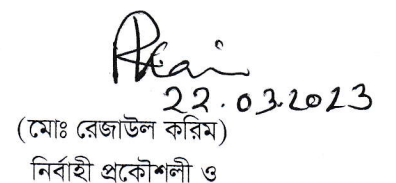 22.03.2023
(মোঃ রেজাউল করিম)
নির্বাহী প্রকৌশলী ও